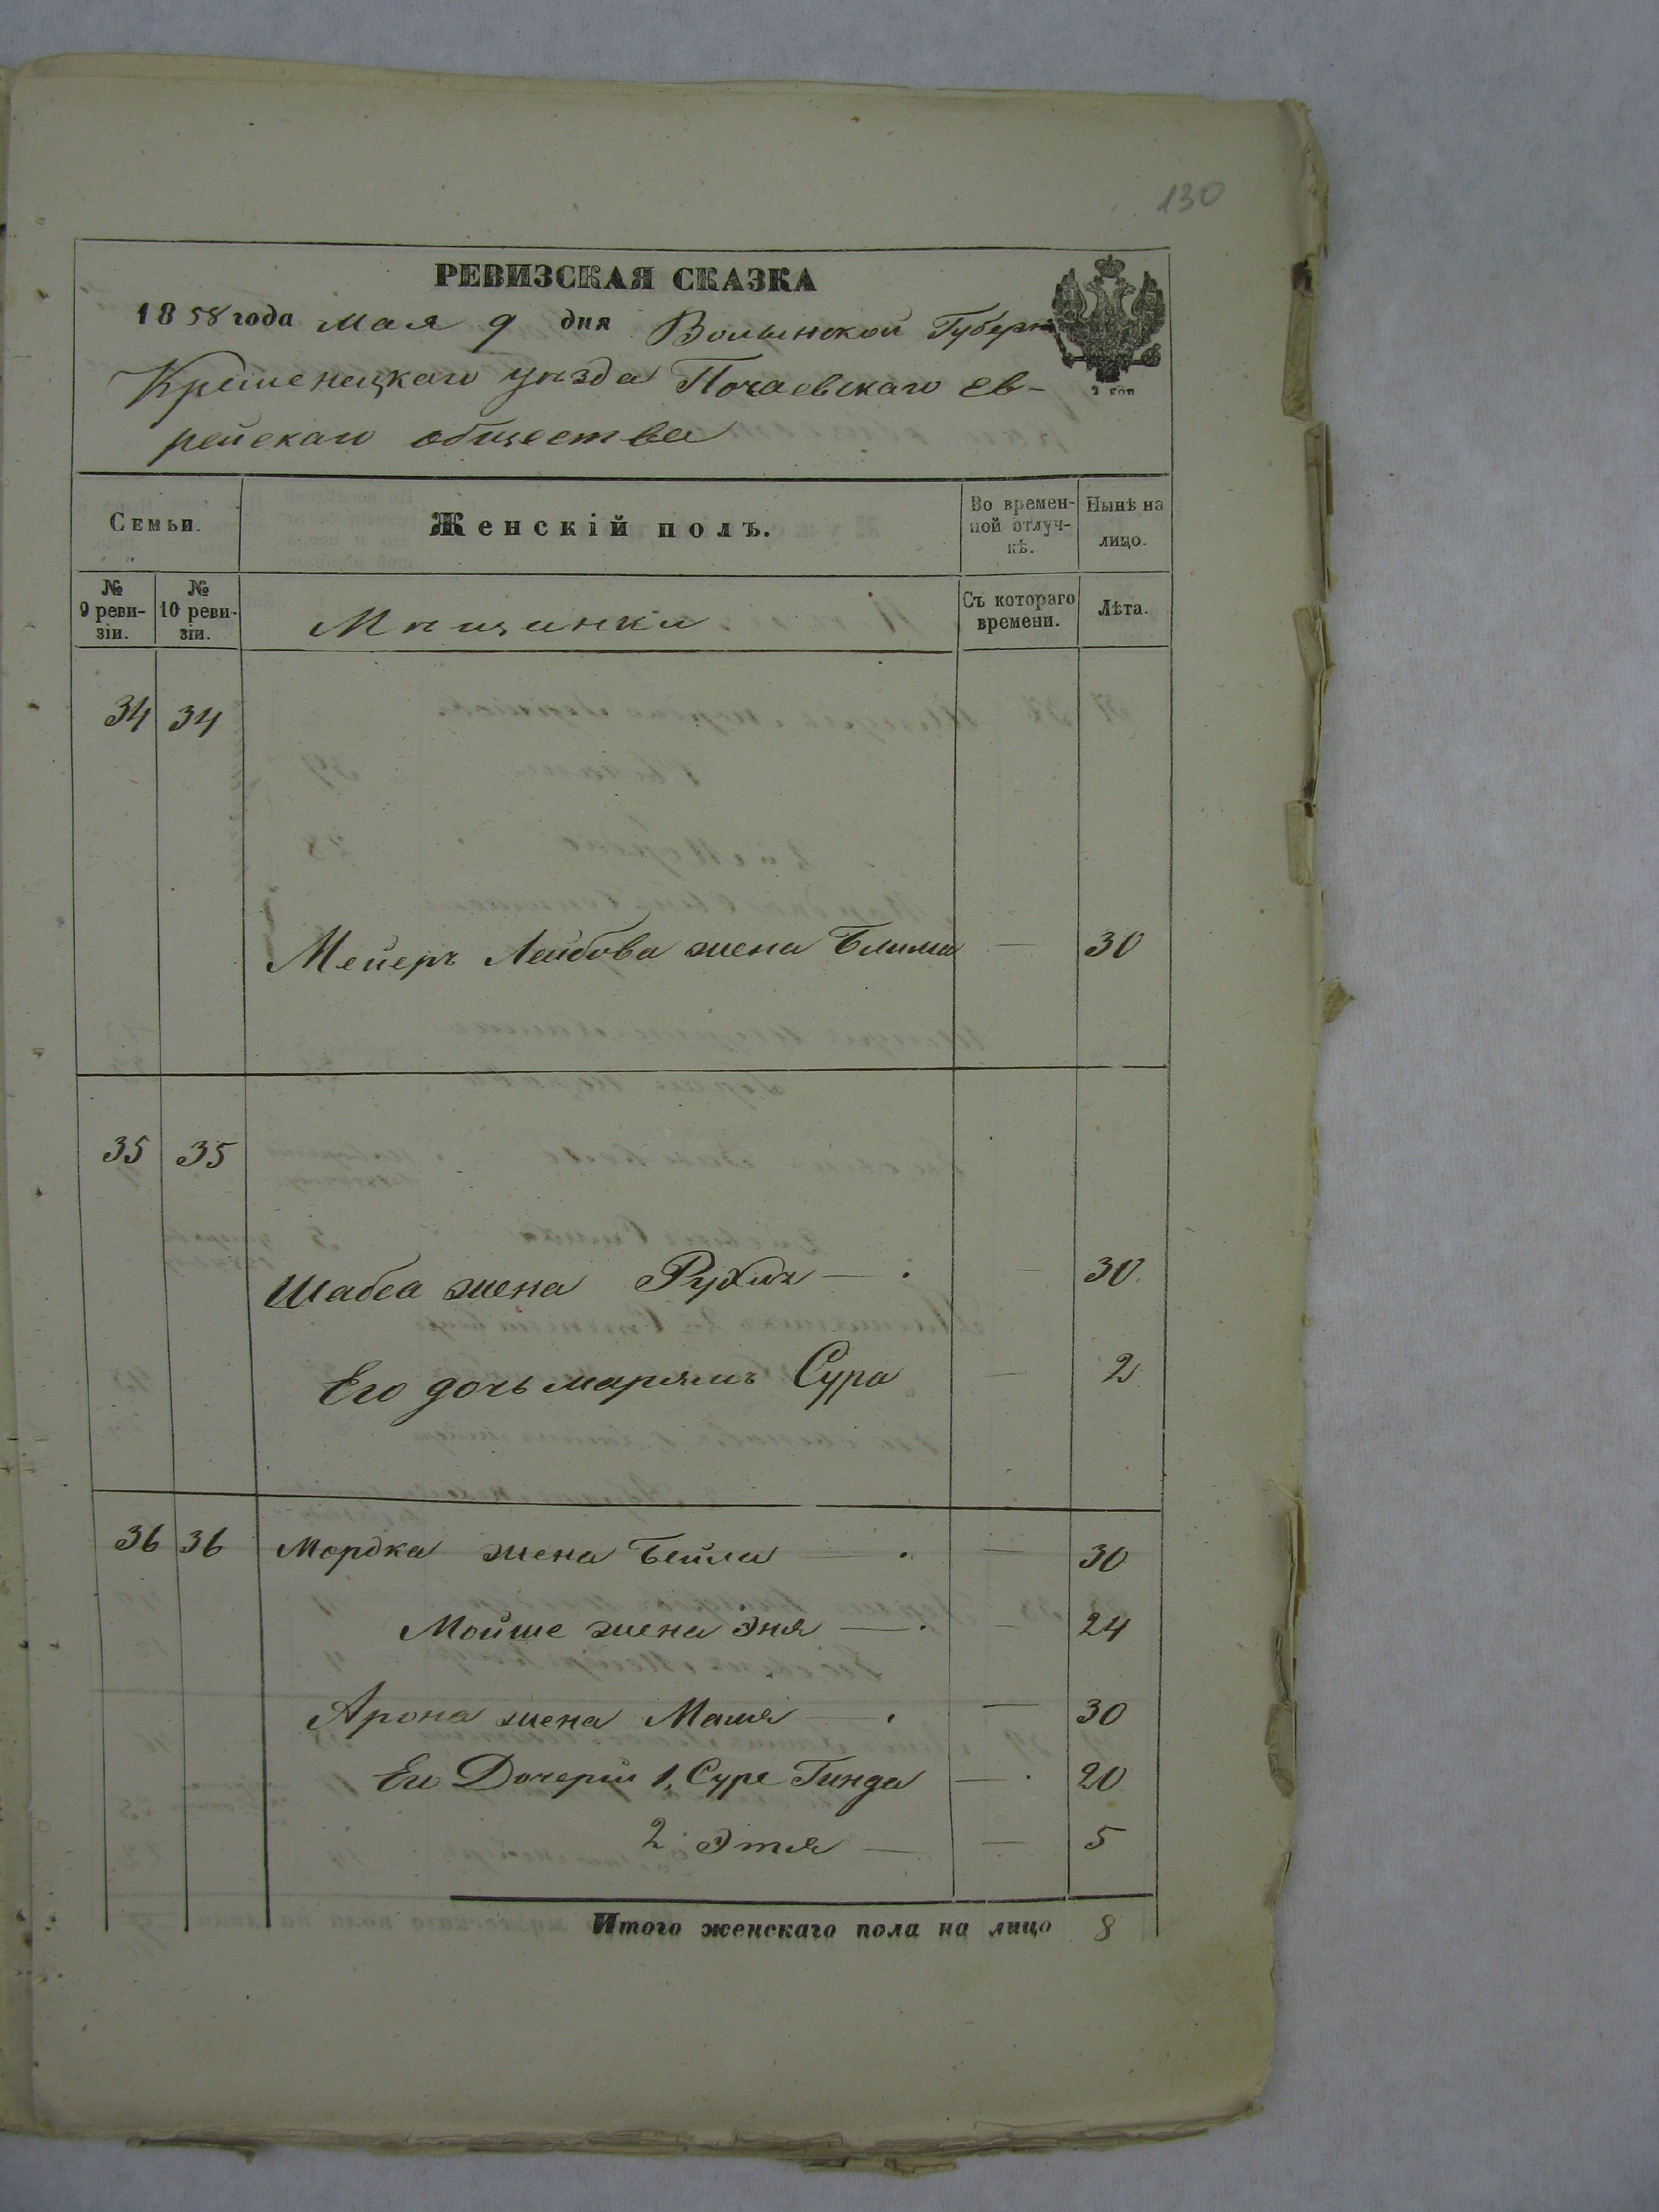 130
РЕВИЗСКАЯ СКАЗКА
1858 года мая 9 дня Волынской Губерн
Кременецкаго уѣзда Почаевскаго ев-
рейскаго общества
2 коп
Семьи.
Женскій полъ.
Во времен-
ной отлуч-
кѣ.
Нынѣ на
лицо.
№
9 реви-
зіи.
№
10 реви-
зіи.
Мѣщанки
Съ котораго
времени.
Лѣта.
34 34
Мейеръ Лейбова жена Блима — 30
35 35
Шабса жена Рухля — 30
Его дочь марямъ Сура — 2
36 36 Мордка жена Бейла — — 30
Мойше жена Эня — — 24
Арона жена Маша — — 30
Его Дочерей 1, Суре Гинда — 20
2 Этя — — 5
Итого женскаго пола на лицо 8